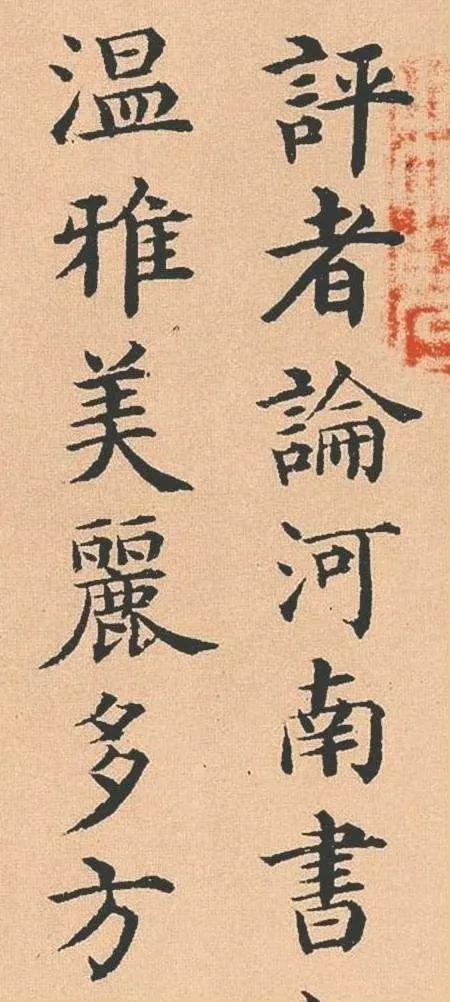 評者論河南書
温雅美麗多方